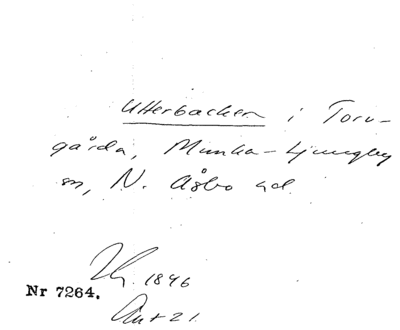 Utterbacken i Toru-
gårda, Munka-Ljungby
sn, N. Åsbo hd.
1846
Nr 7264.
Akt 21.